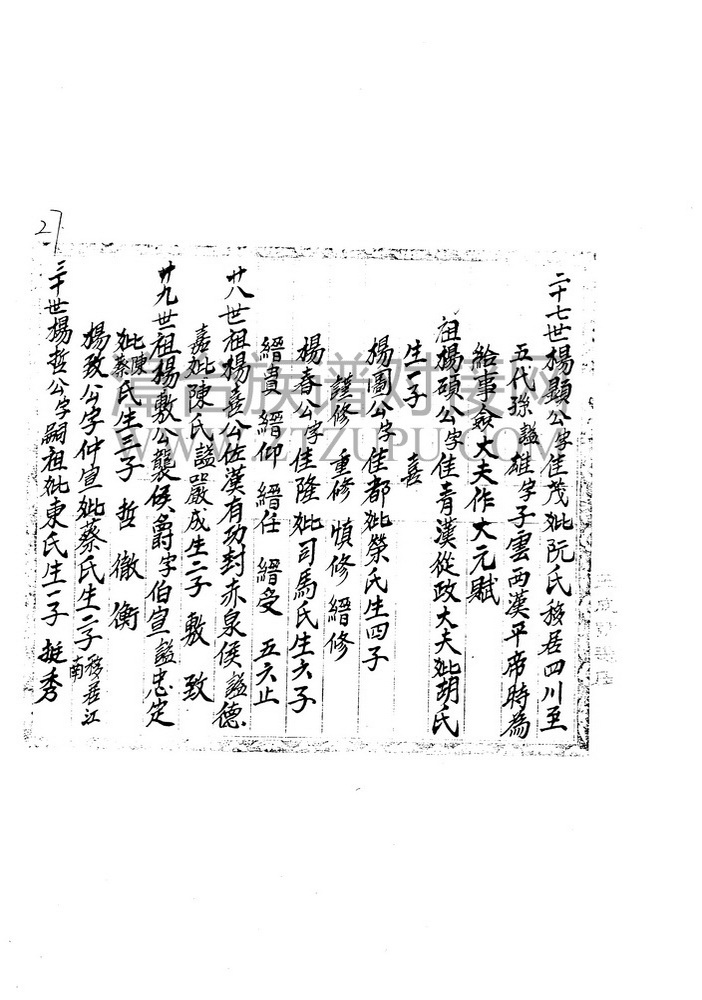 27
二十七世楊顯公字佳茂妣阮氏移居四川至
五代孫謚雄字子雲西漢平帝時為
給事僉大夫作大元賦
祖楊碩公字佳青漢從政大夫妣胡氏
生一子 喜
楊圖公字佳都妣榮氏生四子
謹修 重修 慎修 縉修
楊春公字佳隆妣司馬氏生六子
縉貴 縉仰 縉任 縉受 五六止
廿八世祖楊喜公佐漢有功封赤泉侯謚德
嘉妣陳氏謚嚴成生二子 敷 致
廿九世祖楊敷公襲侯爵字伯宣謚忠定
妣陳蔡氏生三子 哲 徹 衡
楊致公字仲宣妣蔡氏生二子移居江南
三十世楊哲公字嗣祖妣東氏生一子 挺秀
漳台族谱对接网
WWW.ZTZUPU.COM